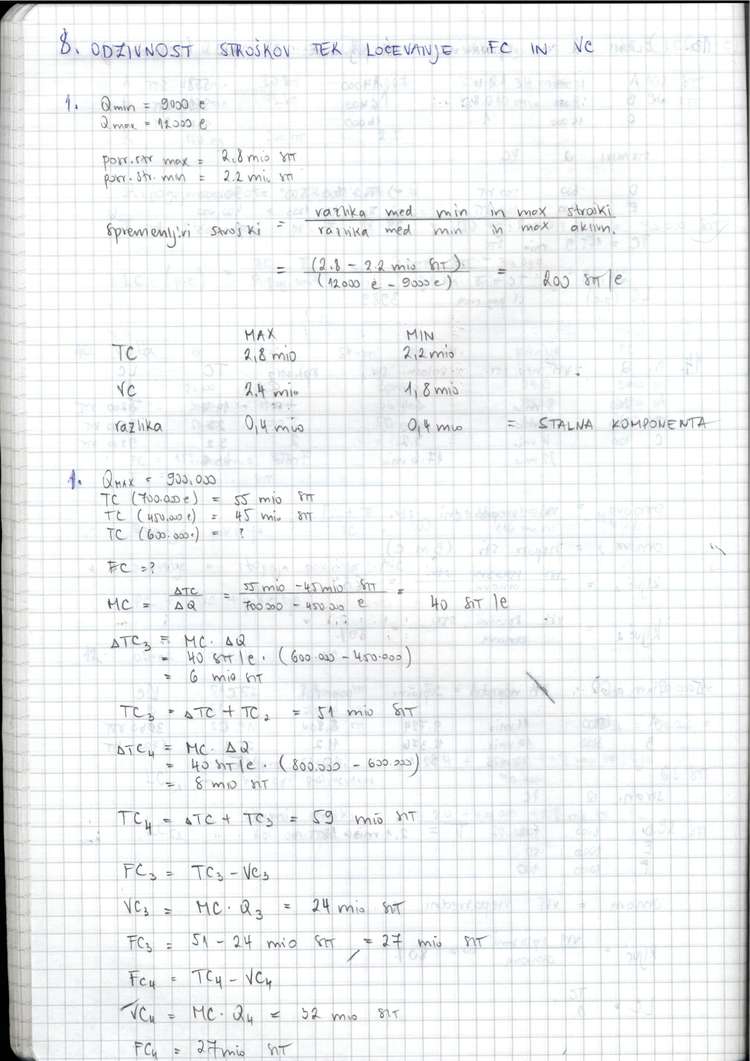 8. ODZIVNOST STROŠKOV TER LOČEVANJE FC IN VC
1. Qmin = 9000 e
Qmax = 12000 e
porr.str max = 2.8 mio SIT
porr.str. min = 2.2 mio SIT
spremenljivi stroški = razlika med min in max stroški / razlika med min in max aktivn.
= (2.8 - 2.2 mio SIT) / (12000 e - 9000 e) = 200 SIT/e
MAX MIN
TC 2,8 mio 2,2 mio
VC 2.4 mio 1,8 mio
razlika 0,4 mio 0,4 mio = STALNA KOMPONENTA
1. QMAX = 900.000
TC (700.000 e) = 55 mio SIT
TC (450.000 e) = 45 mio SIT
TC (600.000 e) = ?
FC = ?
MC = ΔTC / ΔQ = 55 mio - 45 mio SIT / 700 000 - 450.000 e = 40 SIT/e
ΔTC3 = MC · ΔQ
= 40 SIT/e · (600.000 - 450.000)
= 6 mio SIT
TC3 = ΔTC + TC2 = 51 mio SIT
ΔTC4 = MC · ΔQ
= 40 SIT/e · (800.000 - 600.000)
= 8 mio SIT
TC4 = ΔTC + TC3 = 59 mio SIT
FC3 = TC3 - VC3
VC3 = MC · Q3 = 24 mio SIT
FC3 = 51 - 24 mio SIT = 27 mio SIT
FC4 = TC4 - VC4
VC4 = MC · Q4 = 32 mio SIT
FC4 = 27 mio SIT